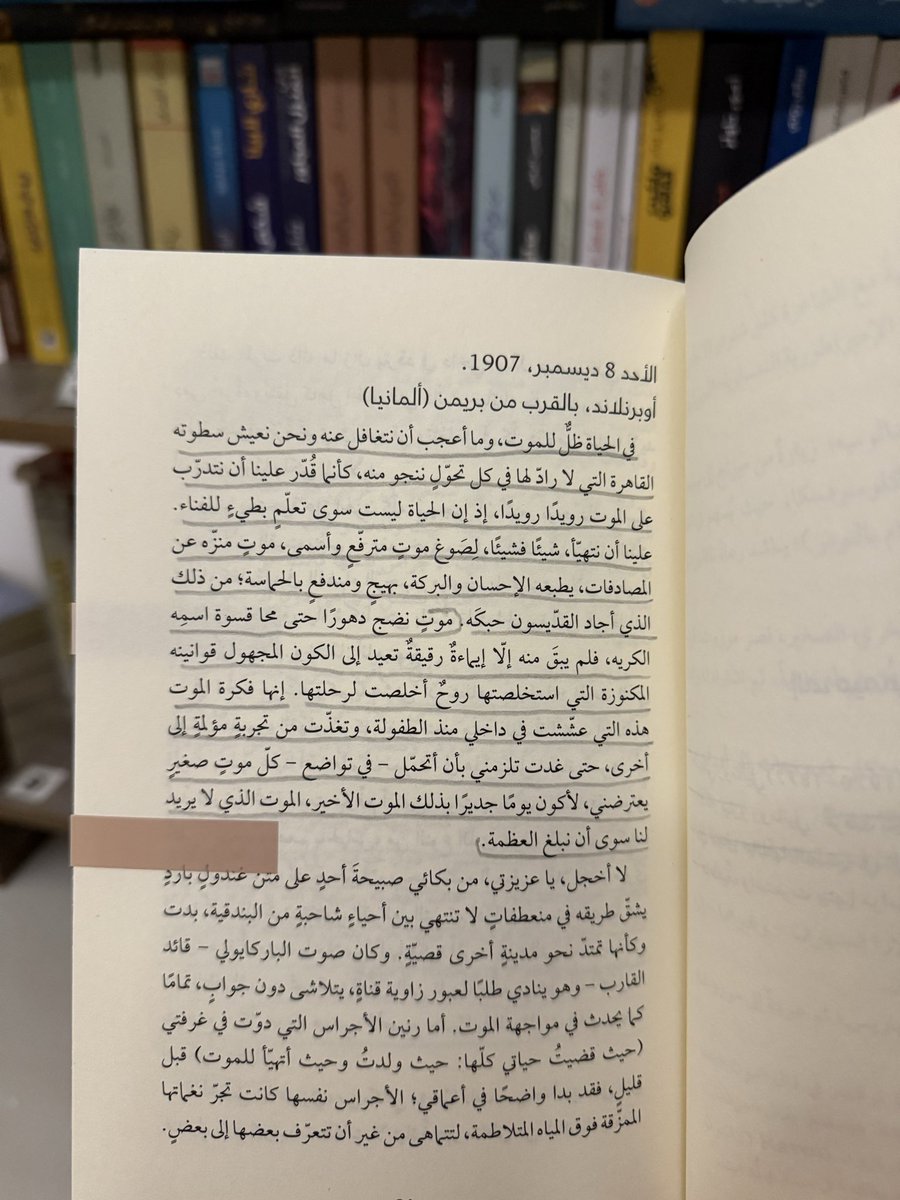 الأحد 8 ديسمبر، 1907.
أوبرنلاند، بالقرب من بريمن (ألمانيا)
في الحياة ظلٌّ للموت، وما أعجب أن نتغافل عنه ونحن نعيش سطوته
القاهرة التي لا رادّ لها في كل تحوّلٍ ننجو منه، كأنما قُدّر علينا أن نتدرّب
على الموت رويدًا رويدًا، إذ إن الحياة ليست سوى تعلّمٍ بطيءٍ للفناء.
علينا أن نتهيّأ، شيئًا فشيئًا، لِصَوغ موتٍ مترفّعٍ وأسمى، موتٍ منزّه عن
المصادفات، يطبعه الإحسان والبركة، بهيجٍ ومندفعٍ بالحماسة؛ من ذلك
الذي أجاد القدّيسون حبكَه. موتٍ نضج دهورًا حتى محا قسوة اسمِه
الكريه، فلم يبقَ منه إلّا إيماءةٌ رقيقةٌ تعيد إلى الكون المجهول قوانينه
المكنوزة التي استخلصتها روحٌ أخلصت لرحلتها. إنها فكرة الموت
هذه التي عشّشت في داخلي منذ الطفولة، وتغذّت من تجربةٍ مؤلمةٍ إلى
أخرى، حتى غدت تلزمني بأن أتحمّل - في تواضع - كلّ موتٍ صغيرٍ
يعترضني، لأكون يومًا جديرًا بذلك الموت الأخير، الموت الذي لا يريد
لنا سوى أن نبلغ العظمة.
لا أخجل، يا عزيزتي، من بكائي صبيحةَ أحدٍ على متن غندولٍ باردٍ
يشقّ طريقه في منعطفاتٍ لا تنتهي بين أحياءٍ شاحبةٍ من البندقية، بدت
وكأنها تمتدّ نحو مدينةٍ أخرى قصيّةٍ. وكان صوت الباركايولي - قائد
القارب - وهو ينادي طلبًا لعبور زاوية قناةٍ، يتلاشى دون جوابٍ، تمامًا
كما يحدث في مواجهة الموت. أما رنين الأجراس التي دوّت في غرفتي
(حيث قضيتُ حياتي كلّها: حيث ولدتُ وحيث أتهيّأ للموت) قبل
قليلٍ، فقد بدا واضحًا في أعماقي؛ الأجراس نفسها كانت تجرّ نغماتها
الممزّقة فوق المياه المتلاطمة، لتتماهى من غير أن تتعرّف بعضها إلى بعضٍ.